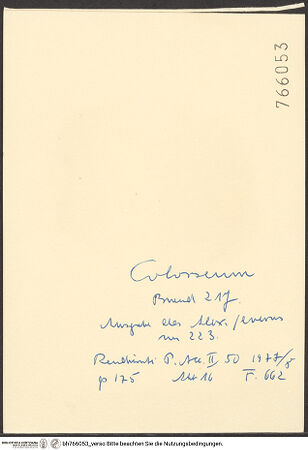 766053
Colosseum
Bruend 217.
Ausgabe des Alex. Severus
um 223.
Rendiconti P. Acc. III 50 1977/8
p 175 Abb 16 F. 662
bh766053_verso Bitte beachten Sie die Nutzungsbedingungen.